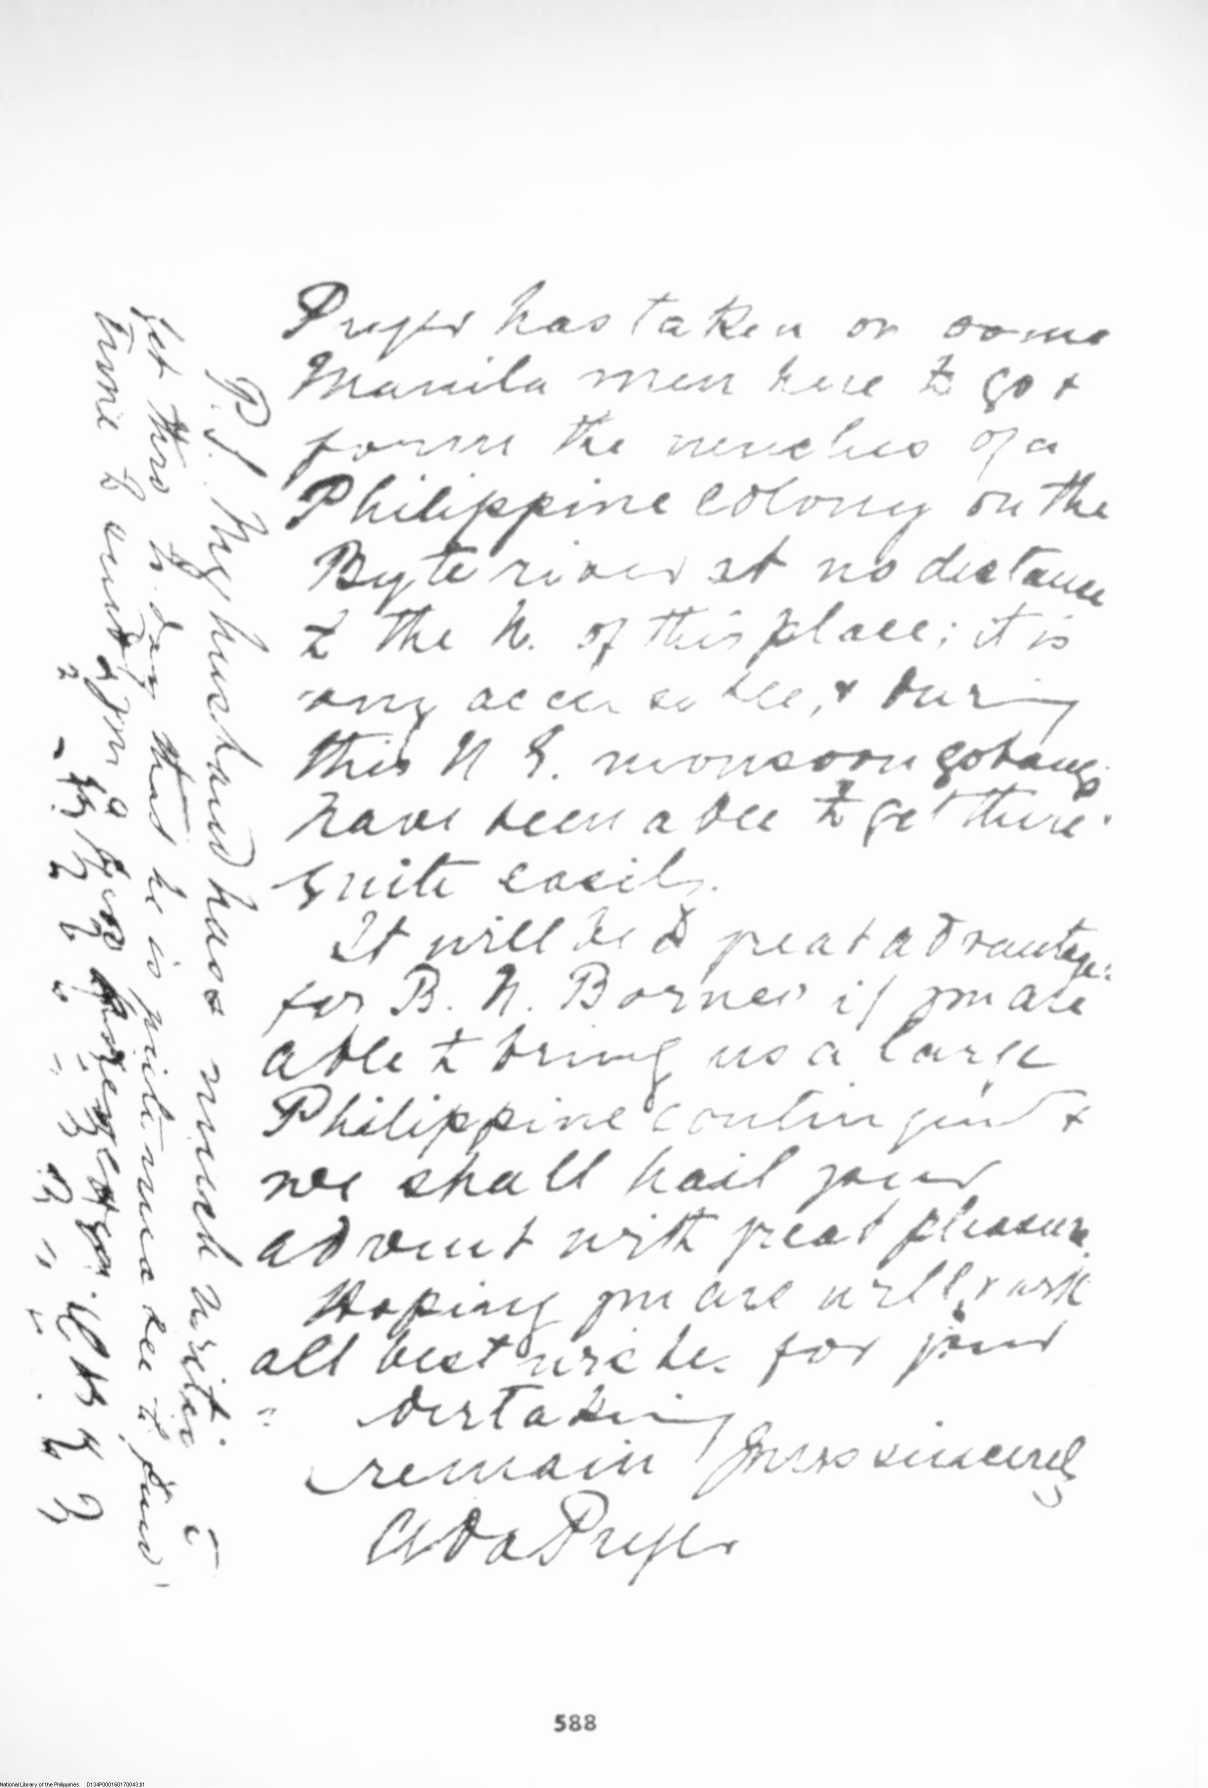 Pryer has taken on some
Manila men here to go &
form the neucleus of a
Philippine colony on the
Byte river at no distance
to the N. of this place; it is
very accessable, & during
this N E. monsoon gobangs
have been able to get there
quite easily.
It will be a great advantage
for B. N. Borneo if you are
able to bring us a large
Philippine contingent &
we shall hail your
advent with great pleasure.
Hoping you are well, & with
all best wishes for your
dertaking
remain Yours sincerely
Ada Pryer
P.S. My husband has so much writing to
get thro to day that he is quite unable to find
time to send you a
588
National Library of the Philippines D134P000168170043.tif